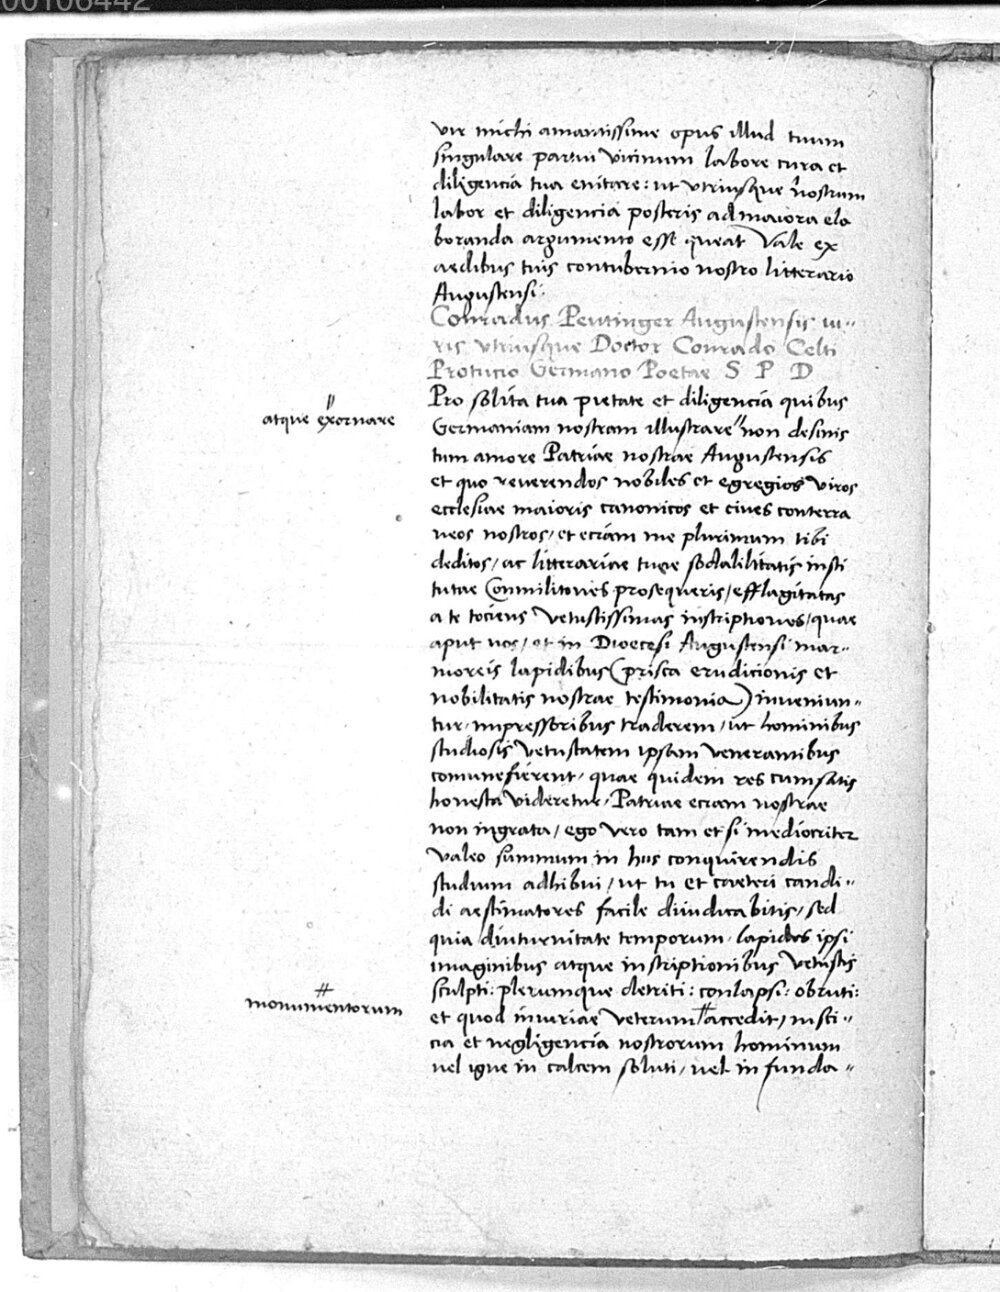 00106442
vir michi amantissime opus illud tuum
singulare partui vicinum labore cura et
diligencia tua enitare: ut utriusque nostrum
labor et diligencia posteris ad maiora ela
boranda argumento esse queat Vale ex
aedibus tuis contubernio nostro litterario
Augustensi.
Conradus Peutinger Augustensis iu-
ris utriusque Doctor Conrado Celti
Protucio Germano Poetae S P D
Pro solita tua pietate et diligencia quibus
atque exornare
Germaniam nostram illustrare non desinis
tum amore Patriae nostrae Augustensis
et quo reverendos nobiles et egregios viros
ecclesiae maioris canonicos et cives conterra
neos nostros, et eciam me plurimum tibi
deditos, ac litterariae tuae sodalitatis insti
tutae Conmilitones prosequeris, efflagitatas
a te tociens vetustissimas inscriptiones, quae
aput nos, et in Diocesi Augustensi mar-
moreis lapidibus (prisca erudicionis et
nobilitatis nostrae testimonia) inveniun-
tur, impressoribus traderem, ut hominibus
studiosis vetustatem ipsam venerantibus
comune fierent, quae quidem res cum satis
honesta videretur, Patriae eciam nostrae
non ingrata, ego vero tam etsi mediocriter
valeo summum in hiis conquirendis
studium adhibui, ut tu et caeteri candi-
di aestimatores facile diiudicabitis, sed
quia diuturnitate temporum, lapides ipsi
imaginibus atque inscriptionibus vetustis
sculpti: plerumque detriti: conlapsi: obruti:
monumentorum
et quod iniuriae veterum accedit, insci-
cia et negligencia nostrorum hominum
vel igne in calcem soluti, vel in funda-